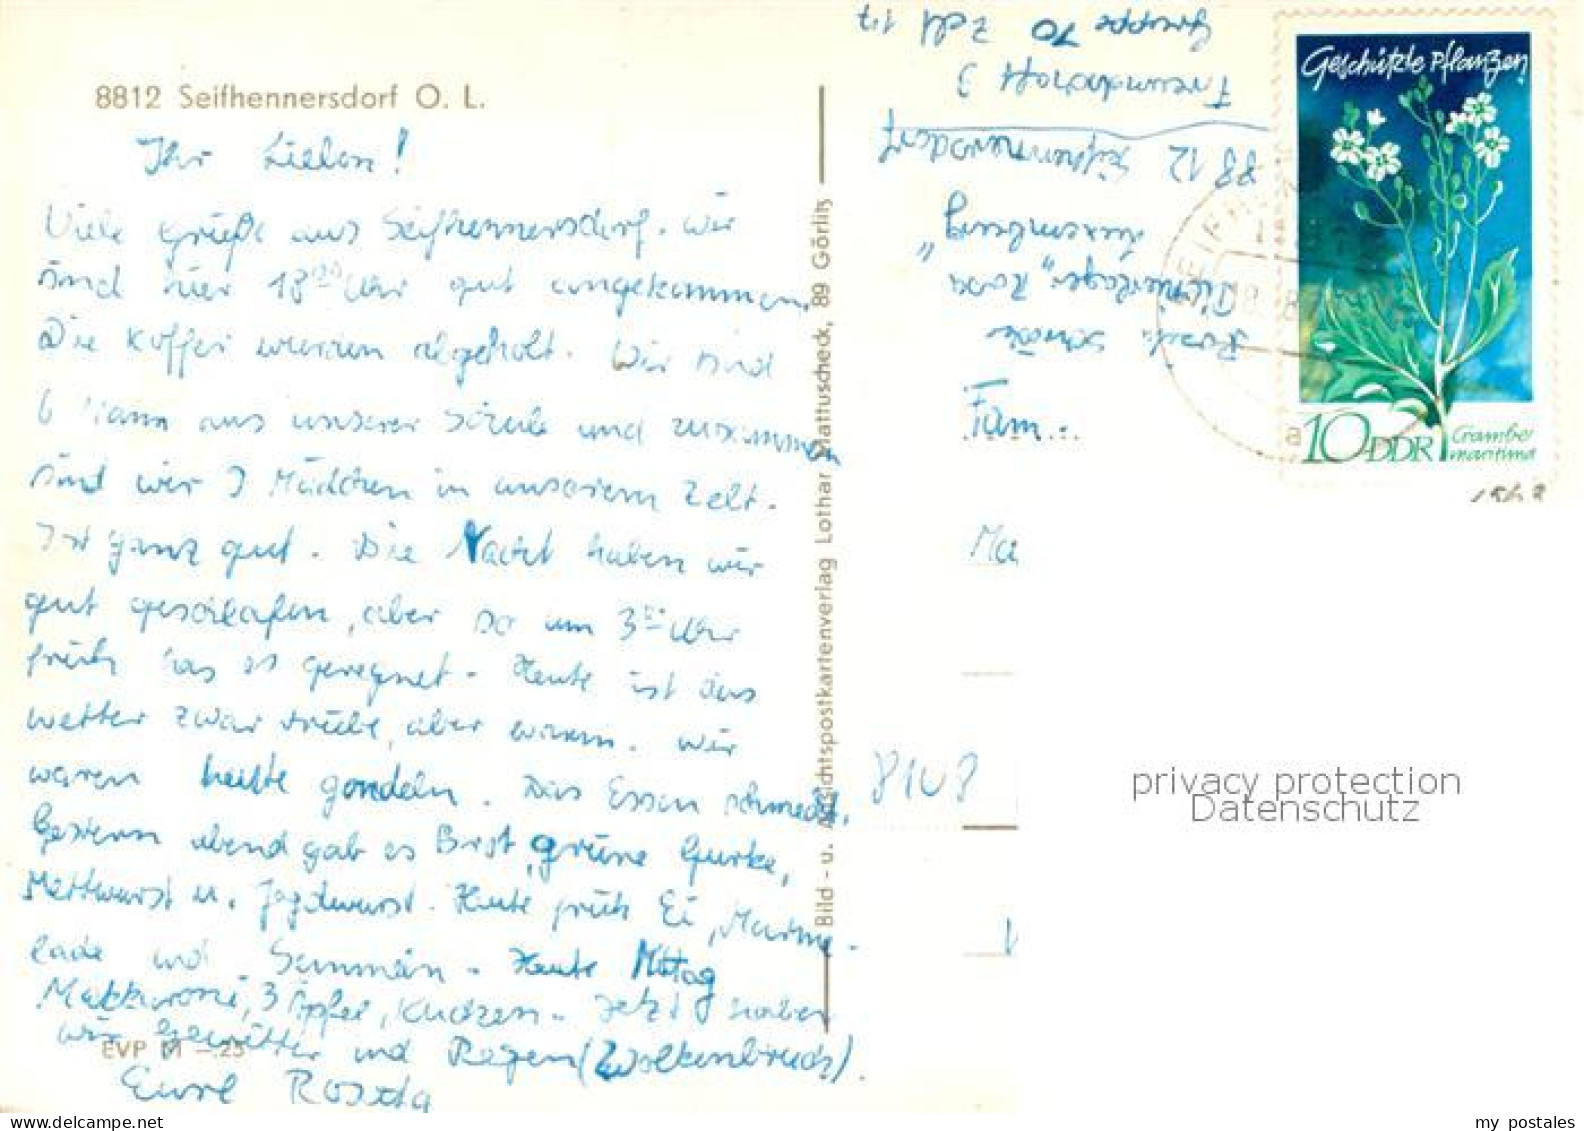 8812 Seifhennersdorf O. L.
Ihr Lieben!
Viele Grüße aus Seifhennersdorf. Wir
sind hier 18 00 Uhr gut angekommen.
Die Koffer wurden abgeholt. Wir sind
6 Mann aus unserer Schule und zusammen
sind wir 9 Mädchen in unserem Zelt.
Ist ganz gut. Die Nacht haben wir
gut geschlafen, aber so um 3 00 Uhr
früh has es geregnet. Heute ist das
Wetter zwar trübe, aber warm. Wir
waren heute gondeln. Das Essen schmeckt.
Gestern abend gab es Brot, grüne Gurke,
Mettwurst u. Jagdwurst. Heute früh Ei, Marme-
lade und Semmeln. Heute Mittag
Makkaroni, 3 Äpfel, Kuchen. Jetzt haben
wir Gewitter und Regen (Wolkenbruch).
Eure
EVP M -.25
Bild- u. Ansichtspostkartenverlag Lothar Mattuscheck, 89 Görlitz
Pionierlager „Rosa
Luxemburg"
8812 Seifhennersdorf
Freundschaft 3
Gruppe 10 Zelt 17
Fam.
8108
Geschützte Pflanzen
10 DDR
Crambe
maritima
a
privacy protection
Datenschutz
my postales
www.delcampe.net